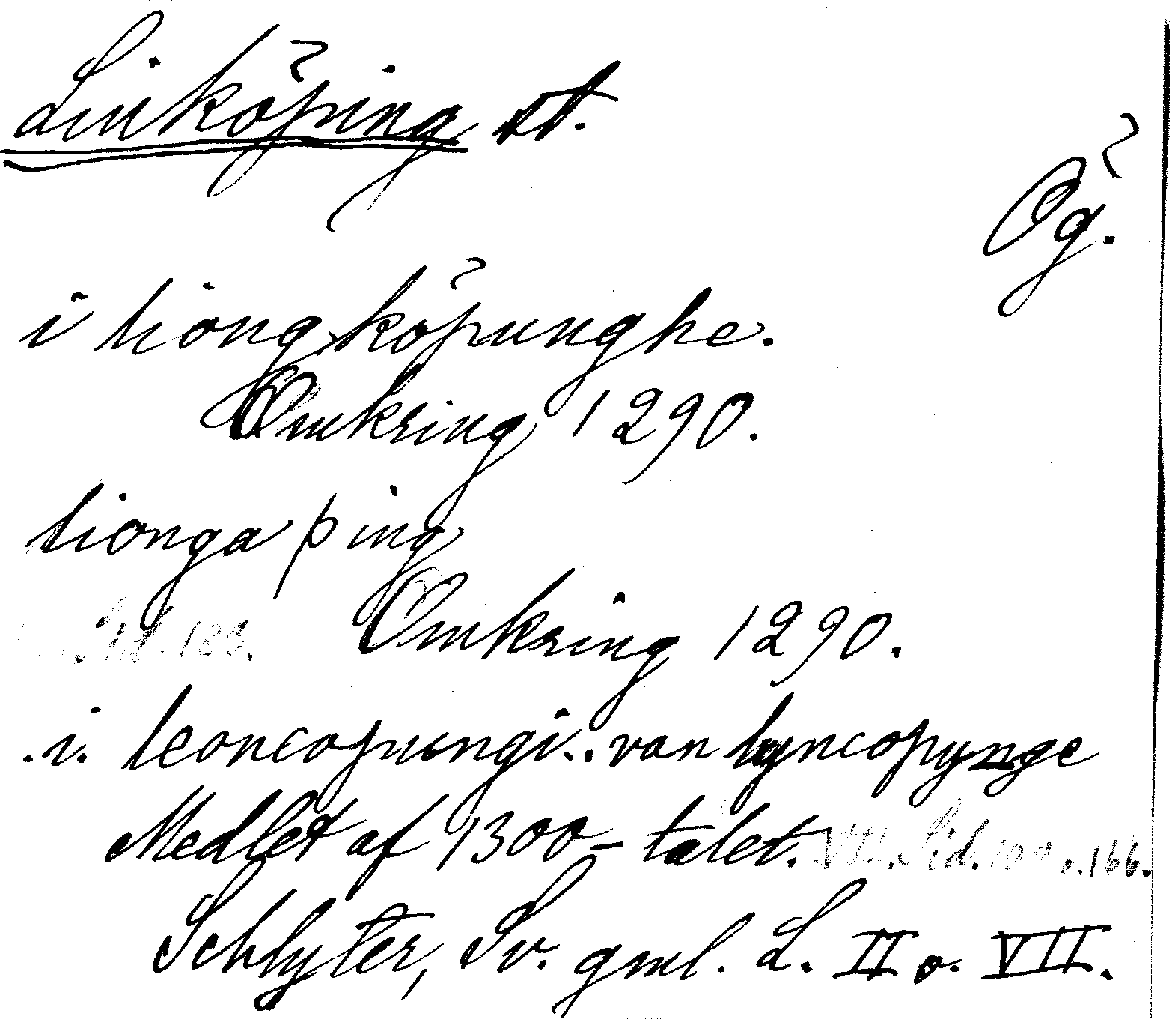 Linköping st.
Ög.
i liongköpunghe.
Omkring 1290.
lionga þing
Omkring 1290.
.i. leoncopungi.. van lyncopynge
Medlet af 1300-talet. VII. Sid. 100 o. 166.
Schlyter, Sv. gml. L. II o. VII.